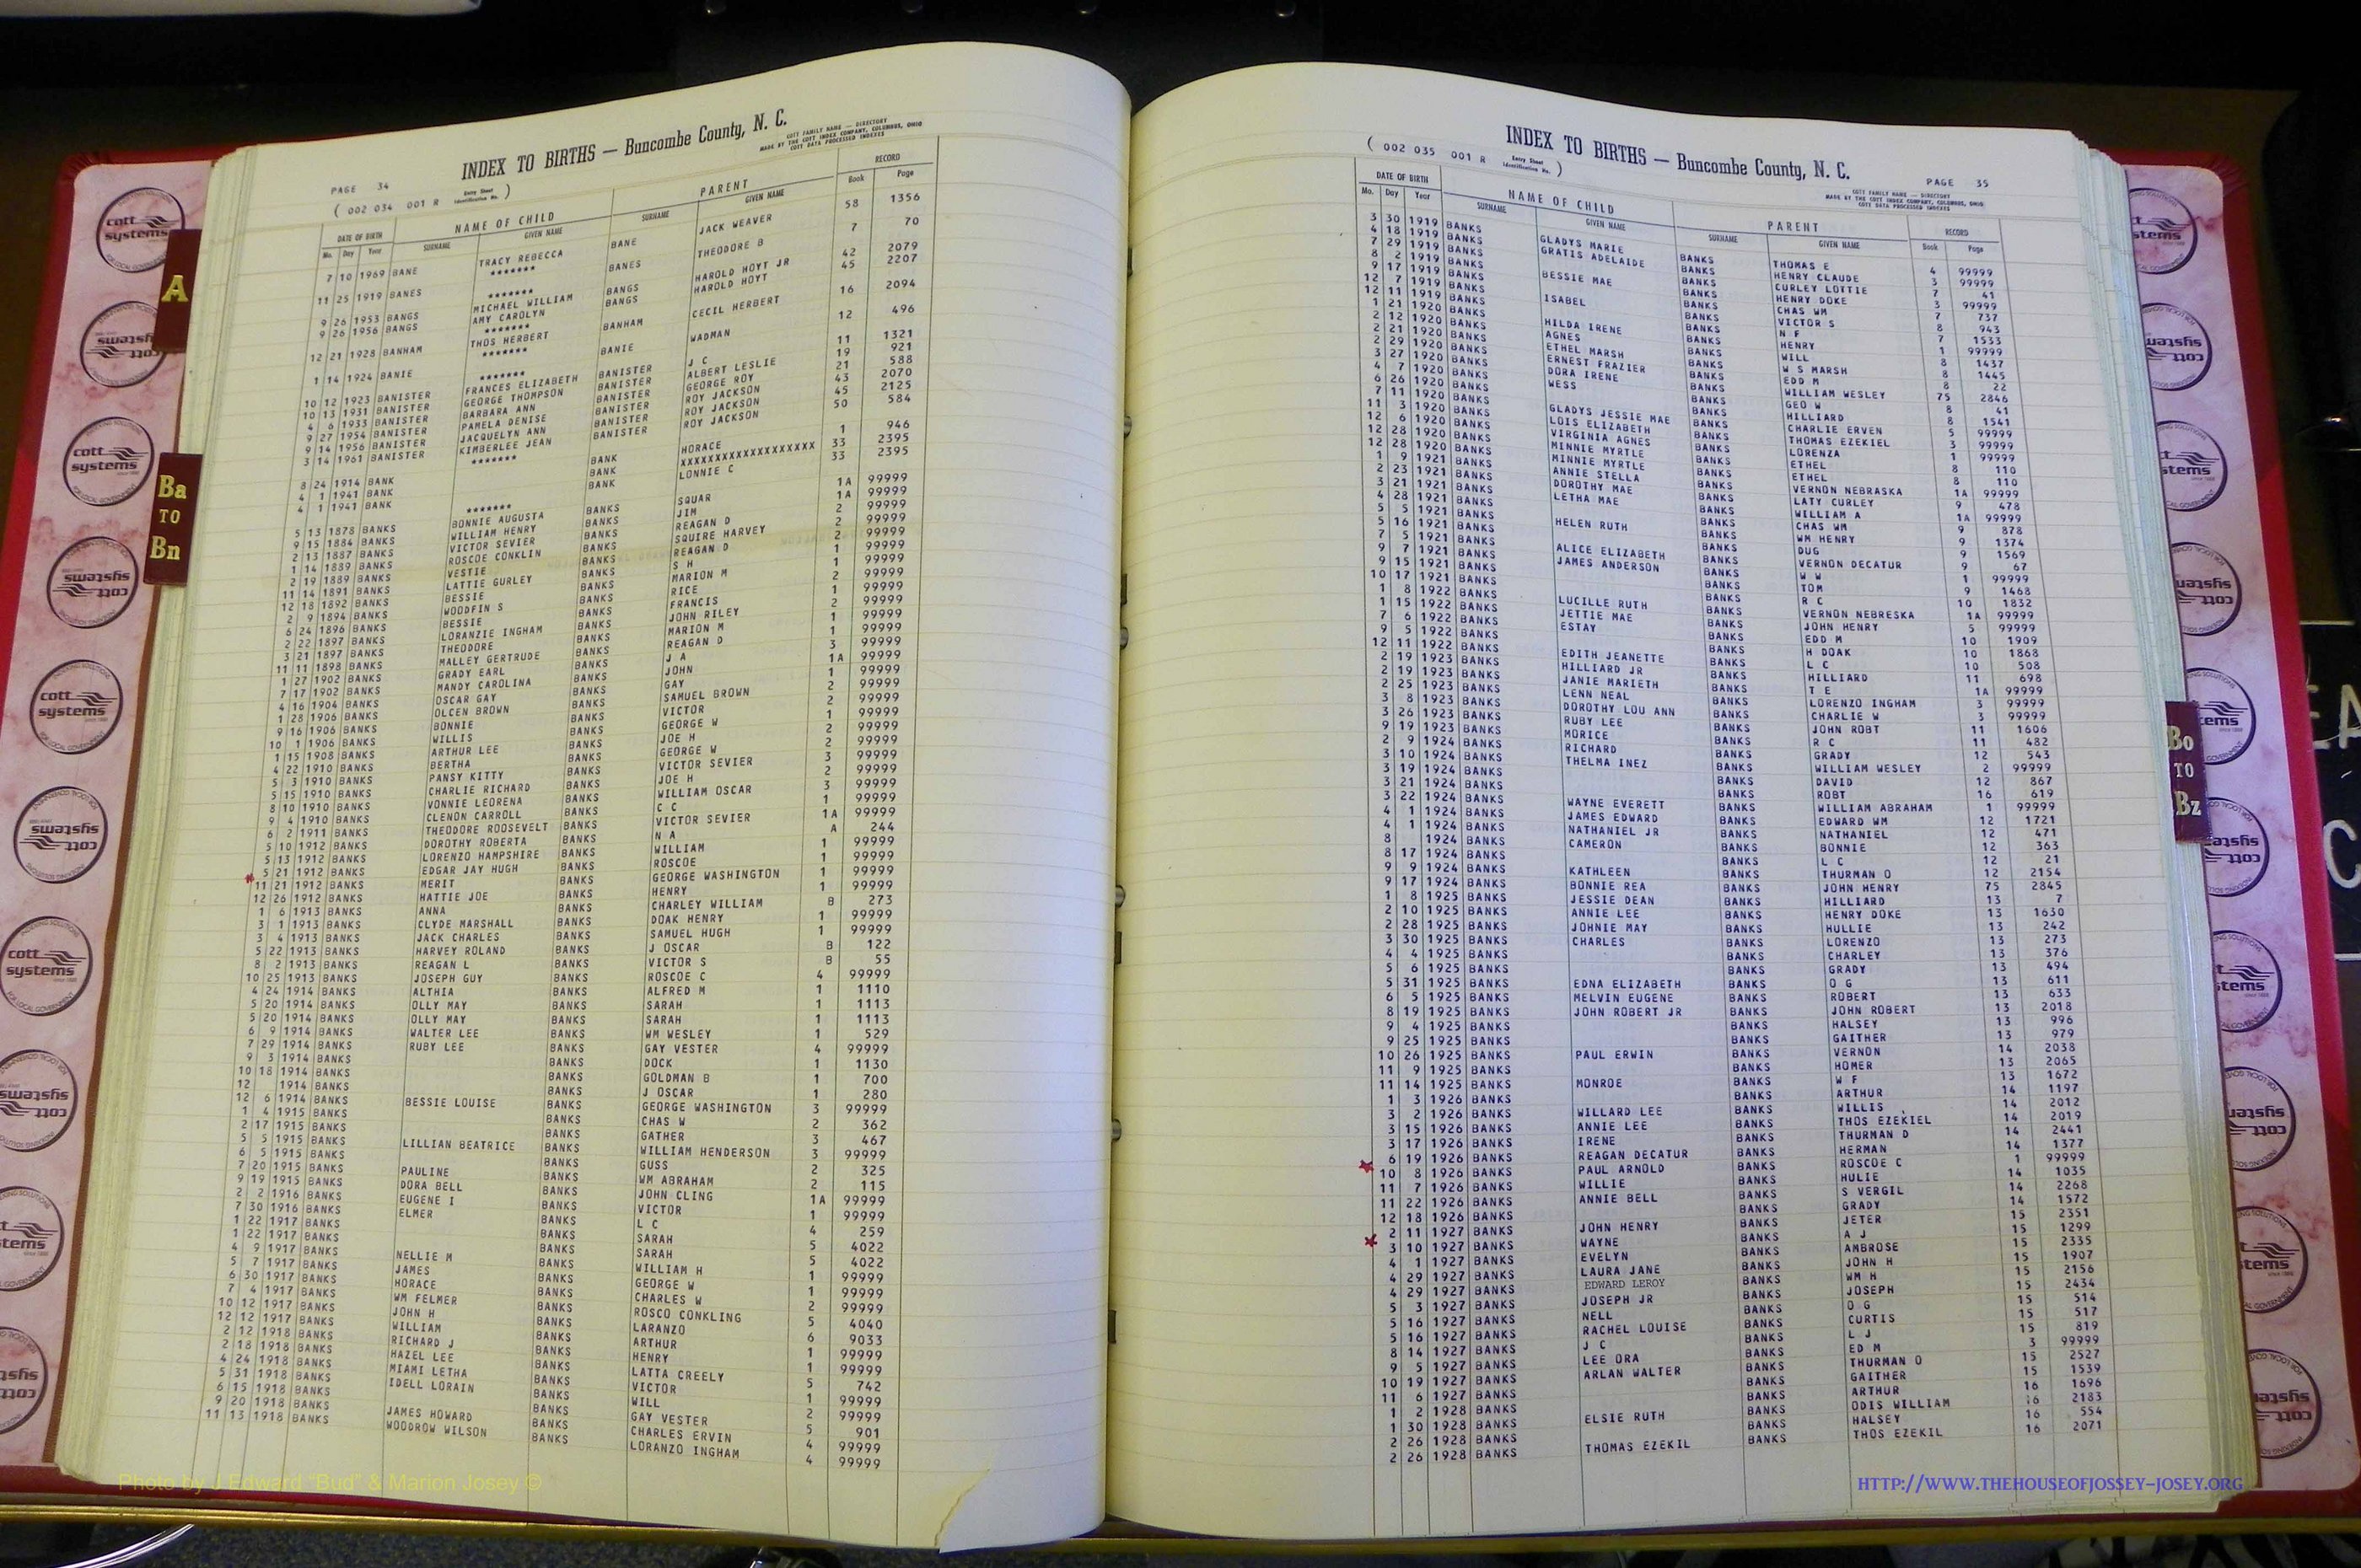 INDEX TO BIRTHS — Buncombe County, N. C.
COTT FAMILY NAME — DIRECTORY
MADE BY THE COTT INDEX COMPANY, COLUMBUS, OHIO
COTT DATA PROCESSED INDEXES
PAGE 34
( 002 034 001 R Entry Sheet Identification No. )
DATE OF BIRTH NAME OF CHILD PARENT RECORD
Mo. Day Year SURNAME GIVEN NAME SURNAME GIVEN NAME Book Page
7 10 1969 BANE TRACY REBECCA BANE JACK WEAVER 58 1356
*******
11 25 1919 BANES BANES THEODORE B 7 70
*******
9 26 1953 BANGS MICHAEL WILLIAM BANGS HAROLD HOYT JR 42 2079
9 26 1956 BANGS AMY CAROLYN BANGS HAROLD HOYT 45 2207
*******
12 21 1928 BANHAM THOS HERBERT BANHAM CECIL HERBERT 16 2094
*******
1 14 1924 BANIE BANIE WADMAN 12 496
*******
10 12 1923 BANISTER FRANCES ELIZABETH BANISTER J C 11 1321
10 13 1931 BANISTER GEORGE THOMPSON BANISTER ALBERT LESLIE 19 921
4 6 1933 BANISTER BARBARA ANN BANISTER GEORGE ROY 21 588
9 27 1954 BANISTER PAMELA DENISE BANISTER ROY JACKSON 43 2070
9 14 1956 BANISTER JACQUELYN ANN BANISTER ROY JACKSON 45 2125
3 14 1961 BANISTER KIMBERLEE JEAN BANISTER ROY JACKSON 50 584
*******
8 24 1914 BANK BANK HORACE 1 946
4 1 1941 BANK BANK XXXXXXXXXXXXXXXXXX 33 2395
4 1 1941 BANK BANK LONNIE C 33 2395
*******
5 13 1878 BANKS BONNIE AUGUSTA BANKS SQUAR 1A 99999
9 15 1884 BANKS WILLIAM HENRY BANKS JIM 1A 99999
2 13 1887 BANKS VICTOR SEVIER BANKS REAGAN D 2 99999
1 14 1889 BANKS ROSCOE CONKLIN BANKS SQUIRE HARVEY 2 99999
2 19 1889 BANKS VESTIE BANKS REAGAN D 2 99999
11 14 1891 BANKS LATTIE GURLEY BANKS S H 1 99999
12 18 1892 BANKS BESSIE BANKS MARION M 1 99999
2 9 1894 BANKS WOODFIN S BANKS RICE 2 99999
6 24 1896 BANKS BESSIE BANKS FRANCIS 1 99999
2 22 1897 BANKS LORANZIE INGHAM BANKS JOHN RILEY 2 99999
3 21 1897 BANKS THEODORE BANKS MARION M 1 99999
11 11 1898 BANKS MALLEY GERTRUDE BANKS REAGAN D 1 99999
1 27 1902 BANKS GRADY EARL BANKS J A 3 99999
7 17 1902 BANKS MANDY CAROLINA BANKS JOHN 1A 99999
4 16 1904 BANKS OSCAR GAY BANKS GAY 1 99999
1 28 1906 BANKS OLCEN BROWN BANKS SAMUEL BROWN 2 99999
9 16 1906 BANKS BONNIE BANKS VICTOR 2 99999
10 1 1906 BANKS WILLIS BANKS GEORGE W 1 99999
1 15 1908 BANKS ARTHUR LEE BANKS JOE H 2 99999
4 22 1910 BANKS BERTHA BANKS GEORGE W 2 99999
5 3 1910 BANKS PANSY KITTY BANKS VICTOR SEVIER 3 99999
5 15 1910 BANKS CHARLIE RICHARD BANKS JOE H 2 99999
8 10 1910 BANKS VONNIE LEORENA BANKS WILLIAM OSCAR 3 99999
9 4 1910 BANKS CLENON CARROLL BANKS C C 1 99999
6 2 1911 BANKS THEODORE ROOSEVELT BANKS VICTOR SEVIER 1A 99999
5 10 1912 BANKS DOROTHY ROBERTA BANKS N A A 244
5 13 1912 BANKS LORENZO HAMPSHIRE BANKS WILLIAM 1 99999
5 21 1912 BANKS EDGAR JAY HUGH BANKS ROSCOE 1 99999
11 21 1912 BANKS MERIT BANKS GEORGE WASHINGTON 1 99999
12 26 1912 BANKS HATTIE JOE BANKS HENRY 1 99999
1 6 1913 BANKS ANNA BANKS CHARLEY WILLIAM B 273
3 1 1913 BANKS CLYDE MARSHALL BANKS DOAK HENRY 1 99999
3 4 1913 BANKS JACK CHARLES BANKS SAMUEL HUGH 1 99999
5 22 1913 BANKS HARVEY ROLAND BANKS J OSCAR B 122
8 2 1913 BANKS REAGAN L BANKS VICTOR S B 55
10 25 1913 BANKS JOSEPH GUY BANKS ROSCOE C 4 99999
4 24 1914 BANKS ALTHIA BANKS ALFRED M 1 1110
5 20 1914 BANKS OLLY MAY BANKS SARAH 1 1113
5 20 1914 BANKS OLLY MAY BANKS SARAH 1 1113
6 9 1914 BANKS WALTER LEE BANKS WM WESLEY 1 529
7 29 1914 BANKS RUBY LEE BANKS GAY VESTER 4 99999
9 3 1914 BANKS BANKS DOCK 1 1130
10 18 1914 BANKS BANKS GOLDMAN B 1 700
12 1914 BANKS BANKS J OSCAR 1 280
12 6 1914 BANKS BESSIE LOUISE BANKS GEORGE WASHINGTON 3 99999
1 4 1915 BANKS BANKS CHAS W 2 362
2 17 1915 BANKS BANKS GATHER 3 467
5 5 1915 BANKS LILLIAN BEATRICE BANKS WILLIAM HENDERSON 3 99999
6 5 1915 BANKS BANKS GUSS 2 325
7 20 1915 BANKS PAULINE BANKS WM ABRAHAM 2 115
9 19 1915 BANKS DORA BELL BANKS JOHN CLING 1A 99999
2 2 1916 BANKS EUGENE I BANKS VICTOR 1 99999
7 30 1916 BANKS ELMER BANKS L C 4 259
1 22 1917 BANKS BANKS SARAH 5 4022
1 22 1917 BANKS BANKS SARAH 5 4022
4 9 1917 BANKS NELLIE M BANKS WILLIAM H 1 99999
5 7 1917 BANKS JAMES BANKS GEORGE W 1 99999
6 30 1917 BANKS HORACE BANKS CHARLES W 2 99999
7 4 1917 BANKS WM FELMER BANKS ROSCO CONKLING 5 4040
10 12 1917 BANKS JOHN H BANKS LARANZO 6 9033
12 12 1917 BANKS WILLIAM BANKS ARTHUR 1 99999
2 12 1918 BANKS RICHARD J BANKS HENRY 1 99999
2 18 1918 BANKS HAZEL LEE BANKS LATTA CREELY 5 742
4 24 1918 BANKS MIAMI LETHA BANKS VICTOR 1 99999
5 31 1918 BANKS IDELL LORAIN BANKS WILL 2 99999
6 15 1918 BANKS BANKS GAY VESTER 5 901
9 20 1918 BANKS JAMES HOWARD BANKS CHARLES ERVIN 4 99999
11 13 1918 BANKS WOODROW WILSON BANKS LORANZO INGHAM 4 99999
INDEX TO BIRTHS — Buncombe County, N. C.
( 002 035 001 R Entry Sheet Identification No. )
PAGE 35
COTT FAMILY NAME — DIRECTORY
MADE BY THE COTT INDEX COMPANY, COLUMBUS, OHIO
COTT DATA PROCESSED INDEXES
DATE OF BIRTH NAME OF CHILD PARENT RECORD
Mo. Day Year SURNAME GIVEN NAME SURNAME GIVEN NAME Book Page
3 30 1919 BANKS GLADYS MARIE BANKS THOMAS E 4 99999
4 18 1919 BANKS GRATIS ADELAIDE BANKS HENRY CLAUDE 3 99999
7 29 1919 BANKS BANKS CURLEY LOTTIE 7 41
8 2 1919 BANKS BESSIE MAE BANKS HENRY DOKE 3 99999
9 17 1919 BANKS BANKS CHAS WM 7 737
12 7 1919 BANKS ISABEL BANKS VICTOR S 8 943
12 11 1919 BANKS BANKS N F 7 1533
1 21 1920 BANKS HILDA IRENE BANKS HENRY 1 99999
2 12 1920 BANKS AGNES BANKS WILL 8 1437
2 21 1920 BANKS ETHEL MARSH BANKS W S MARSH 8 1445
2 29 1920 BANKS ERNEST FRAZIER BANKS EDD M 8 22
3 27 1920 BANKS DORA IRENE BANKS WILLIAM WESLEY 75 2846
4 7 1920 BANKS WESS BANKS GEO W 8 41
6 26 1920 BANKS BANKS HILLIARD 8 1541
7 11 1920 BANKS GLADYS JESSIE MAE BANKS CHARLIE ERVEN 5 99999
11 3 1920 BANKS LOIS ELIZABETH BANKS THOMAS EZEKIEL 3 99999
12 6 1920 BANKS VIRGINIA AGNES BANKS LORENZA 1 99999
12 28 1920 BANKS MINNIE MYRTLE BANKS ETHEL 8 110
12 28 1920 BANKS MINNIE MYRTLE BANKS ETHEL 8 110
1 9 1921 BANKS ANNIE STELLA BANKS VERNON NEBRASKA 1A 99999
2 23 1921 BANKS DOROTHY MAE BANKS LATY CURLEY 9 478
3 21 1921 BANKS LETHA MAE BANKS WILLIAM A 1A 99999
4 28 1921 BANKS BANKS CHAS WM 9 878
5 5 1921 BANKS HELEN RUTH BANKS WM HENRY 9 1374
5 16 1921 BANKS BANKS DUG 9 1569
7 5 1921 BANKS ALICE ELIZABETH BANKS VERNON DECATUR 9 67
9 7 1921 BANKS JAMES ANDERSON BANKS W W 1 99999
9 15 1921 BANKS BANKS TOM 9 1468
10 17 1921 BANKS BANKS R C 10 1832
1 8 1922 BANKS LUCILLE RUTH BANKS VERNON NEBRESKA 1A 99999
1 15 1922 BANKS JETTIE MAE BANKS JOHN HENRY 5 99999
7 6 1922 BANKS ESTAY BANKS EDD M 10 1909
9 5 1922 BANKS BANKS H DOAK 10 1868
12 11 1922 BANKS EDITH JEANETTE BANKS L C 10 508
2 19 1923 BANKS HILLIARD JR BANKS HILLIARD 11 698
2 19 1923 BANKS JANIE MARIETH BANKS T E 1A 99999
2 25 1923 BANKS LENN NEAL BANKS LORENZO INGHAM 3 99999
3 8 1923 BANKS DOROTHY LOU ANN BANKS CHARLIE W 3 99999
3 26 1923 BANKS RUBY LEE BANKS JOHN ROBT 11 1606
9 19 1923 BANKS MORICE BANKS R C 11 482
2 9 1924 BANKS RICHARD BANKS GRADY 12 543
3 10 1924 BANKS THELMA INEZ BANKS WILLIAM WESLEY 2 99999
3 19 1924 BANKS BANKS DAVID 12 867
3 21 1924 BANKS BANKS ROBT 16 619
3 22 1924 BANKS WAYNE EVERETT BANKS WILLIAM ABRAHAM 1 99999
4 1 1924 BANKS JAMES EDWARD BANKS EDWARD WM 12 1721
4 1 1924 BANKS NATHANIEL JR BANKS NATHANIEL 12 471
8 1924 BANKS CAMERON BANKS BONNIE 12 363
8 17 1924 BANKS BANKS L C 12 21
9 9 1924 BANKS KATHLEEN BANKS THURMAN O 12 2154
9 17 1924 BANKS BONNIE REA BANKS JOHN HENRY 75 2845
1 8 1925 BANKS JESSIE DEAN BANKS HILLIARD 13 7
2 10 1925 BANKS ANNIE LEE BANKS HENRY DOKE 13 1630
2 28 1925 BANKS JOHNIE MAY BANKS HULLIE 13 242
3 30 1925 BANKS CHARLES BANKS LORENZO 13 273
4 4 1925 BANKS BANKS CHARLEY 13 376
5 6 1925 BANKS BANKS GRADY 13 494
5 31 1925 BANKS EDNA ELIZABETH BANKS O G 13 611
6 5 1925 BANKS MELVIN EUGENE BANKS ROBERT 13 633
8 19 1925 BANKS JOHN ROBERT JR BANKS JOHN ROBERT 13 2018
9 4 1925 BANKS BANKS HALSEY 13 996
9 25 1925 BANKS BANKS GAITHER 13 979
10 26 1925 BANKS PAUL ERWIN BANKS VERNON 14 2038
11 9 1925 BANKS BANKS HOMER 13 2065
11 14 1925 BANKS MONROE BANKS W F 13 1672
1 3 1926 BANKS BANKS ARTHUR 14 1197
3 2 1926 BANKS WILLARD LEE BANKS WILLIS 14 2012
3 15 1926 BANKS ANNIE LEE BANKS THOS EZEKIEL 14 2019
3 17 1926 BANKS IRENE BANKS THURMAN D 14 2441
6 19 1926 BANKS REAGAN DECATUR BANKS HERMAN 14 1377
10 8 1926 BANKS PAUL ARNOLD BANKS ROSCOE C 1 99999
11 7 1926 BANKS WILLIE BANKS HULIE 14 1035
11 22 1926 BANKS ANNIE BELL BANKS S VERGIL 14 2268
12 18 1926 BANKS BANKS GRADY 14 1572
2 11 1927 BANKS JOHN HENRY BANKS JETER 15 2351
3 10 1927 BANKS WAYNE BANKS A J 15 1299
4 1 1927 BANKS EVELYN BANKS AMBROSE 15 2335
4 29 1927 BANKS LAURA JANE BANKS JOHN H 15 1907
4 29 1927 BANKS EDWARD LEROY BANKS WM H 15 2156
5 3 1927 BANKS JOSEPH JR BANKS JOSEPH 15 2434
5 16 1927 BANKS NELL BANKS O G 15 514
5 16 1927 BANKS RACHEL LOUISE BANKS CURTIS 15 517
8 14 1927 BANKS J C BANKS L J 15 819
9 5 1927 BANKS LEE ORA BANKS ED M 3 99999
10 19 1927 BANKS ARLAN WALTER BANKS THURMAN O 15 2527
11 6 1927 BANKS BANKS GAITHER 15 1539
1 2 1928 BANKS BANKS ARTHUR 16 1696
1 30 1928 BANKS ELSIE RUTH BANKS ODIS WILLIAM 16 2183
2 26 1928 BANKS BANKS HALSEY 16 554
2 26 1928 BANKS THOMAS EZEKIL BANKS THOS EZEKIL 16 2071
A
Ba TO Bn
Bo TO Bz
cott systems
Photo by J Edward "Bud" & Marion Josey ©
HTTP://WWW.THEHOUSEOFJOSSEY-JOSEY.ORG